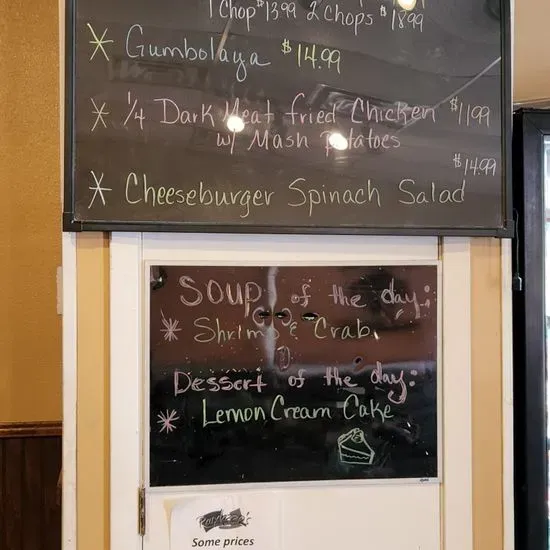 1 Chop $13.99 2 Chops $18.99
* Gumbolaya $14.99
* 1/4 Dark Meat fried Chicken $11.99
w/ Mash Potatoes
$14.99
* Cheeseburger Spinach Salad
SOUP of the day:
* Shrimp & Crab
Dessert of the day:
* Lemon Cream Cake
Some prices